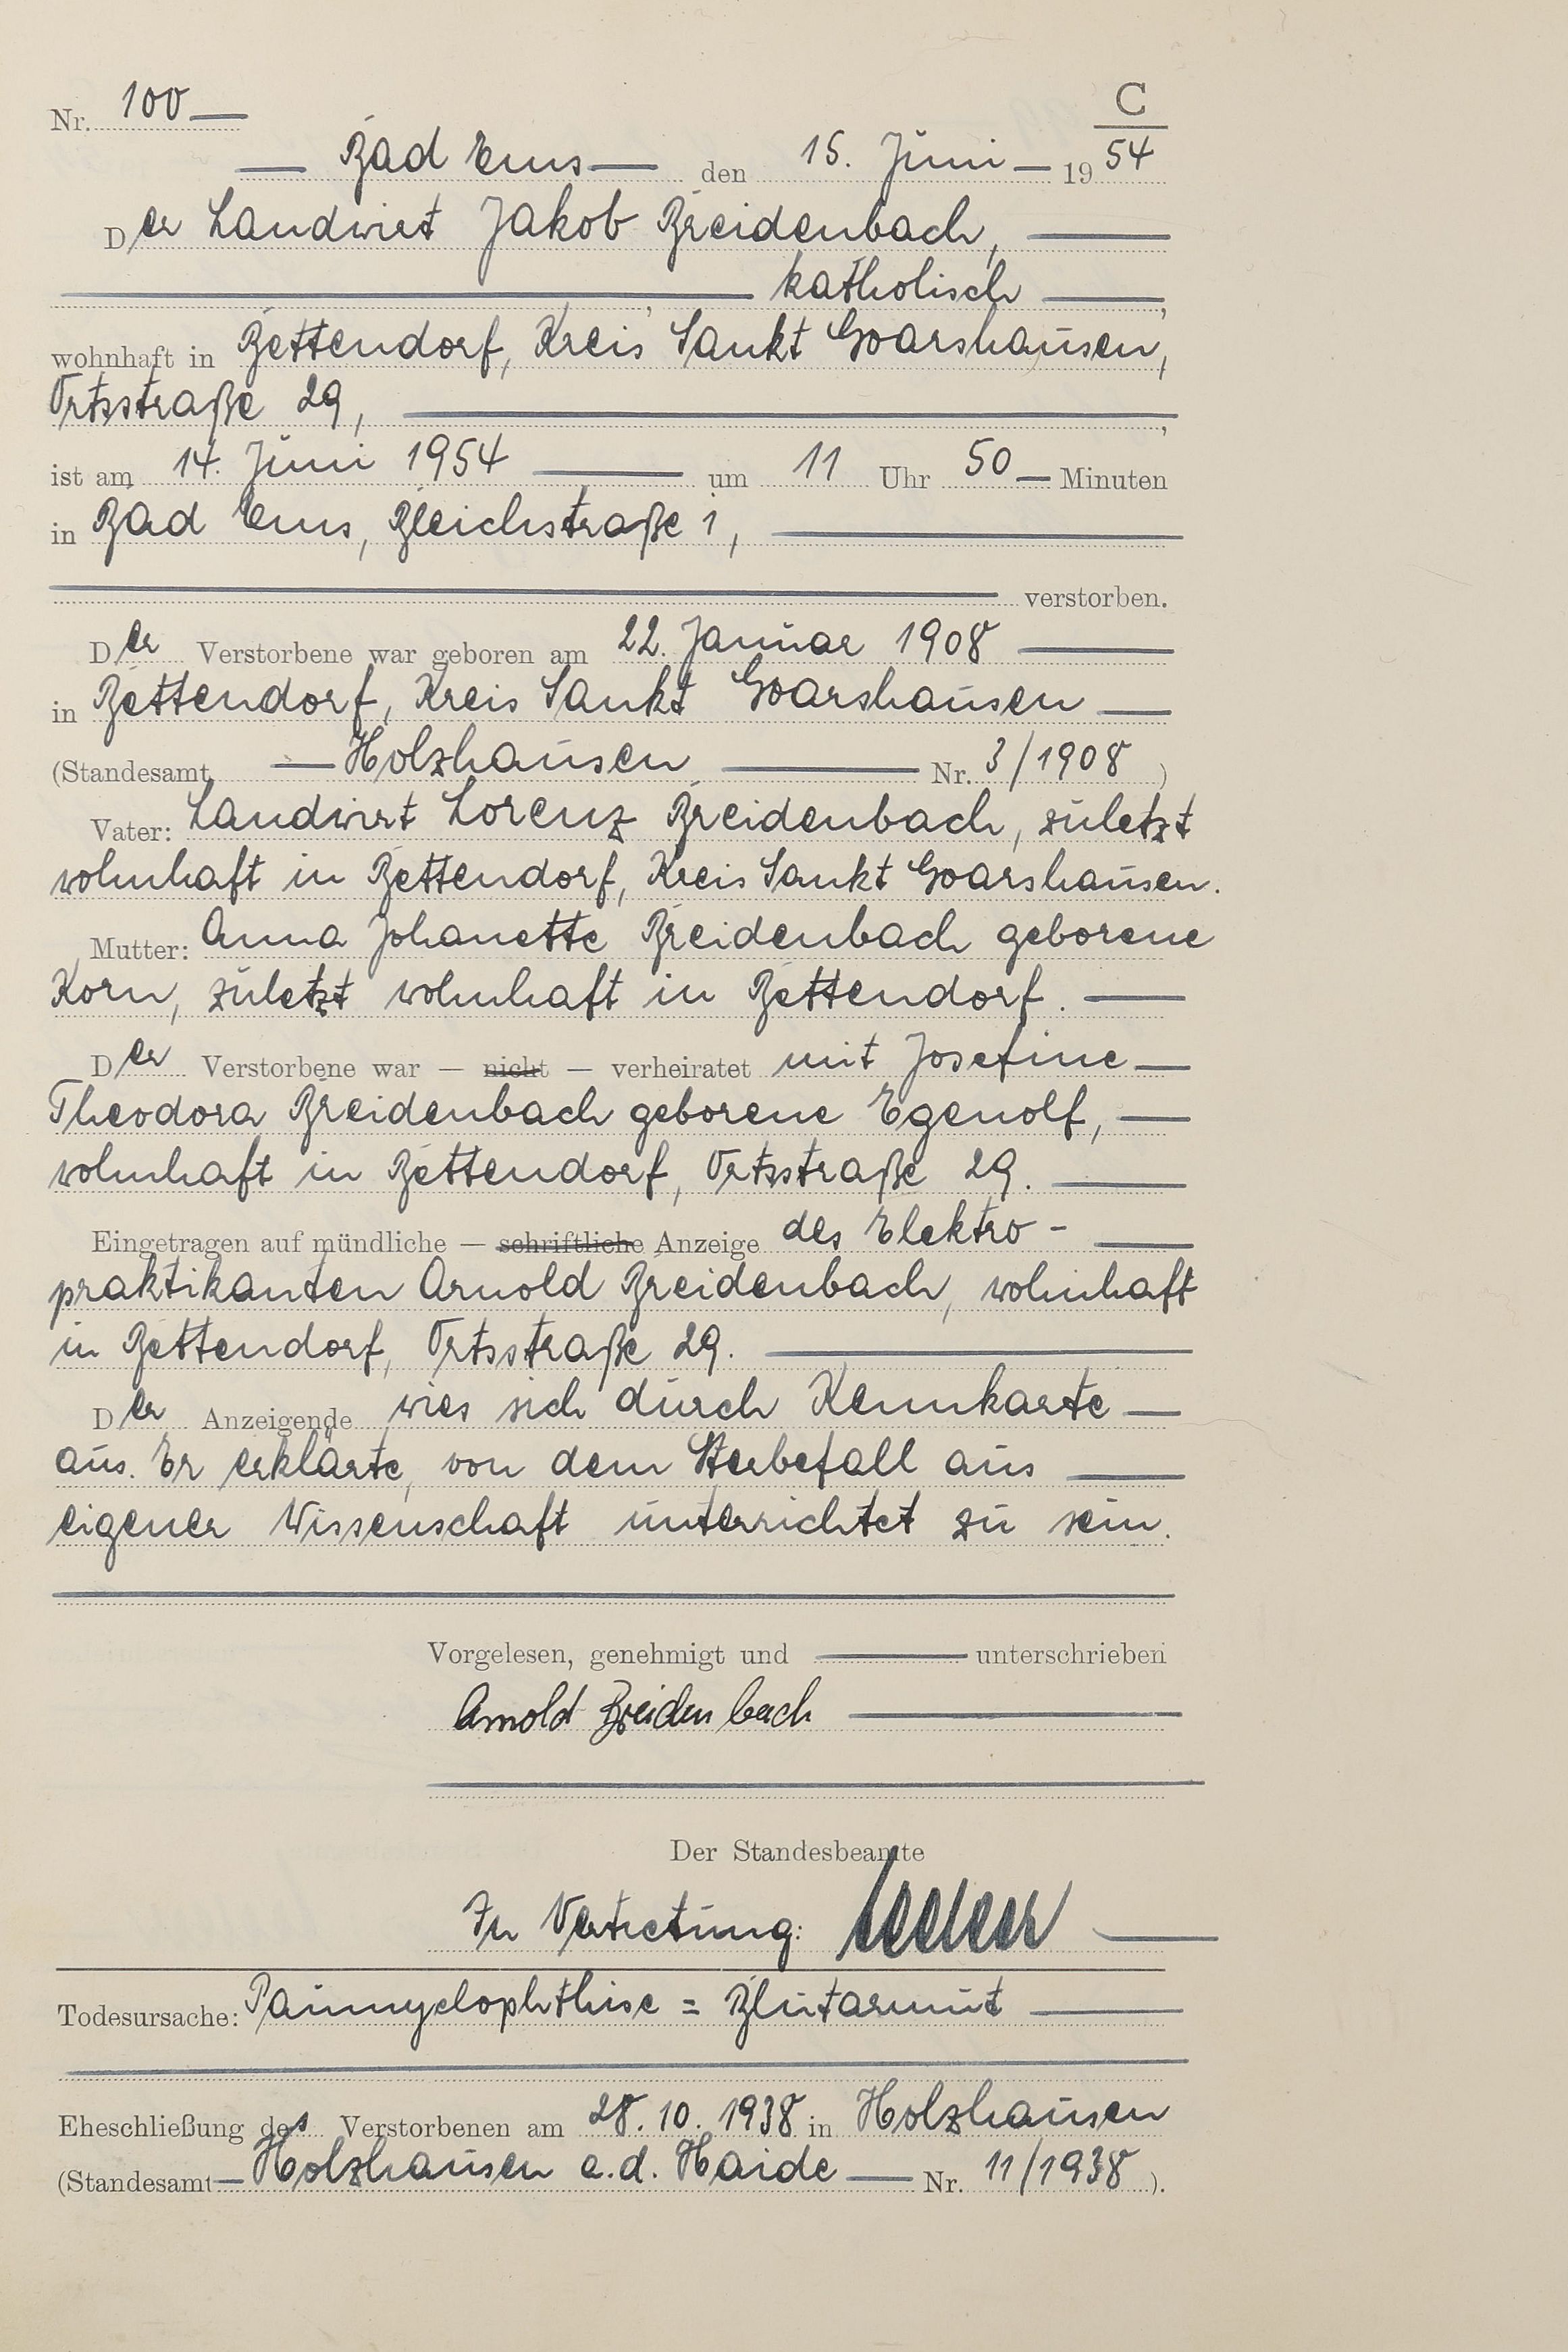 C
Nr. 100
Bad Ems den 15. Juni 1954
Der Landwirt Jakob Breidenbach,
katholisch,
wohnhaft in Bettendorf, Kreis Sankt Goarshausen,
Ortsstraße 29,
ist am 14. Juni 1954 um 11 Uhr 50 Minuten
in Bad Ems, Bleichstraße 1,
verstorben.
Der Verstorbene war geboren am 22. Januar 1908
in Bettendorf, Kreis Sankt Goarshausen
(Standesamt Holzhausen Nr. 3/1908)
Vater: Landwirt Lorenz Breidenbach, zuletzt
wohnhaft in Bettendorf, Kreis Sankt Goarshausen.
Mutter: Anna Johanette Breidenbach geborene
Korn, zuletzt wohnhaft in Bettendorf.
Der Verstorbene war — nicht — verheiratet mit Josefine
Theodora Breidenbach geborene Egenolf,
wohnhaft in Bettendorf, Ortsstraße 29.
Eingetragen auf mündliche — schriftliche Anzeige des Elektro-
praktikanten Arnold Breidenbach, wohnhaft
in Bettendorf, Ortsstraße 29.
Der Anzeigende wies sich durch Kennkarte
aus. Er erklärte, von dem Sterbefall aus
eigener Wissenschaft unterrichtet zu sein.
Vorgelesen, genehmigt und unterschrieben
Arnold Breidenbach
Der Standesbeamte
In Vertretung:
Todesursache: Panmyelophthise = Blutarmut
Eheschließung des Verstorbenen am 28.10.1938 in Holzhausen
(Standesamt Holzhausen a.d. Haide Nr. 11/1938).